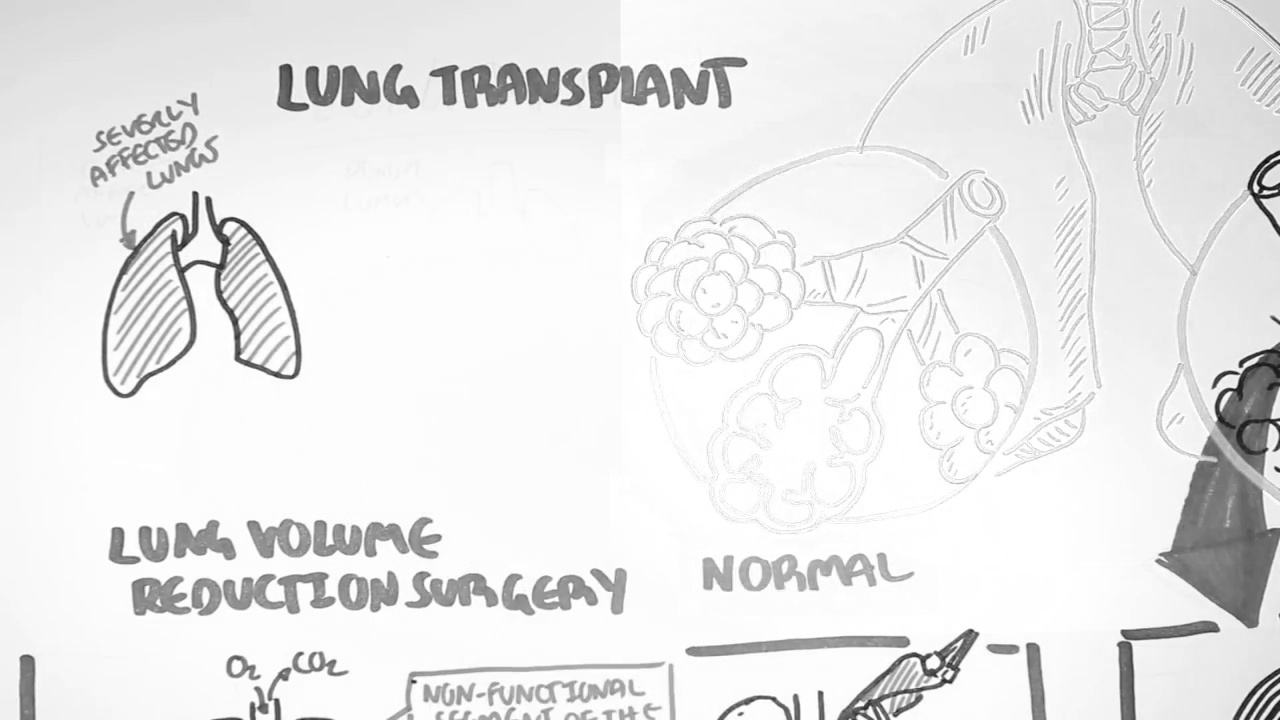 LUNG TRANSPLANT
SEVERLY
AFFECTED
LUNGS
LUNG VOLUME
REDUCTION SURGERY
NORMAL
O2 CO2
NON-FUNCTIONAL
SEGMENT OF THE